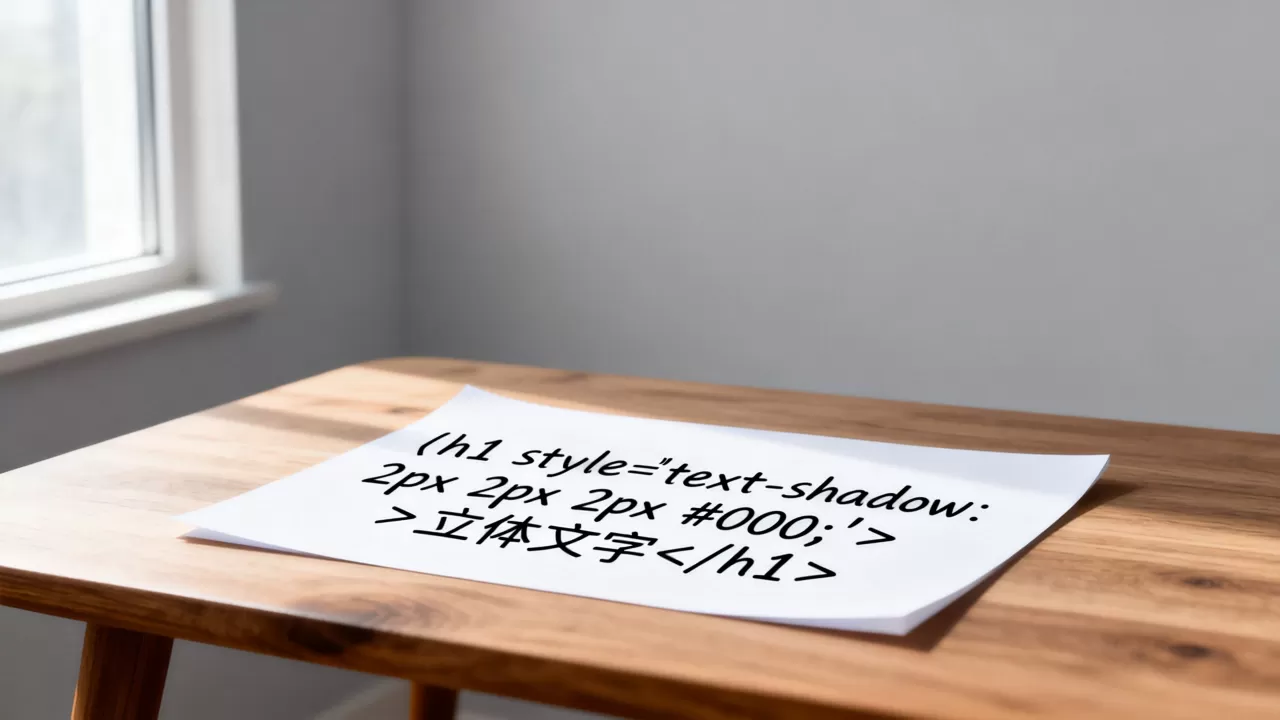 (h1 style="text-shadow:
2px 2px 2px #000;'>
>立体文字</h1>